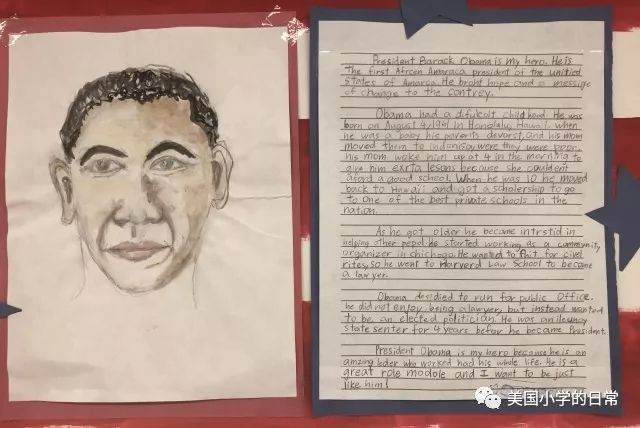 President Barack Obama is my hero. He is
the first Africen Amaraca president of the unitied
states of Amarca. He broht hope and a messige
of change to the contrey.
Obama had a difukolt childhood. He was
born on August 4, 1961 in Honolulu, Hawaii. when
he was a baby his poverth devorst, and his mom
moved them to indanisa, were they were poor.
his mom woke him up at 4 in the morning to
give him exrta lesons because she couldent
aford a good school. When he was 10 he moved
back to Hawaii and got a scholership to go
to one of the best private schools in the
nation.
As he got older he became intrstid in
helping other pepol. He started working as a community,
organizer in chichogo. He wanted to fhit for civel
rites, so he went to Harverd Law School to become
a lawyer.
Obama desdied to run for public Office.
he did not enjoy being a lawyer, but instead wanted
to be an elected politician. He was an
state senter for 4 years befor he became President.
President Obama is my hero because he is an
amzing leder who worked had his whole life. He is a
great role modole and I want to be just
like him!
美国小学的日常